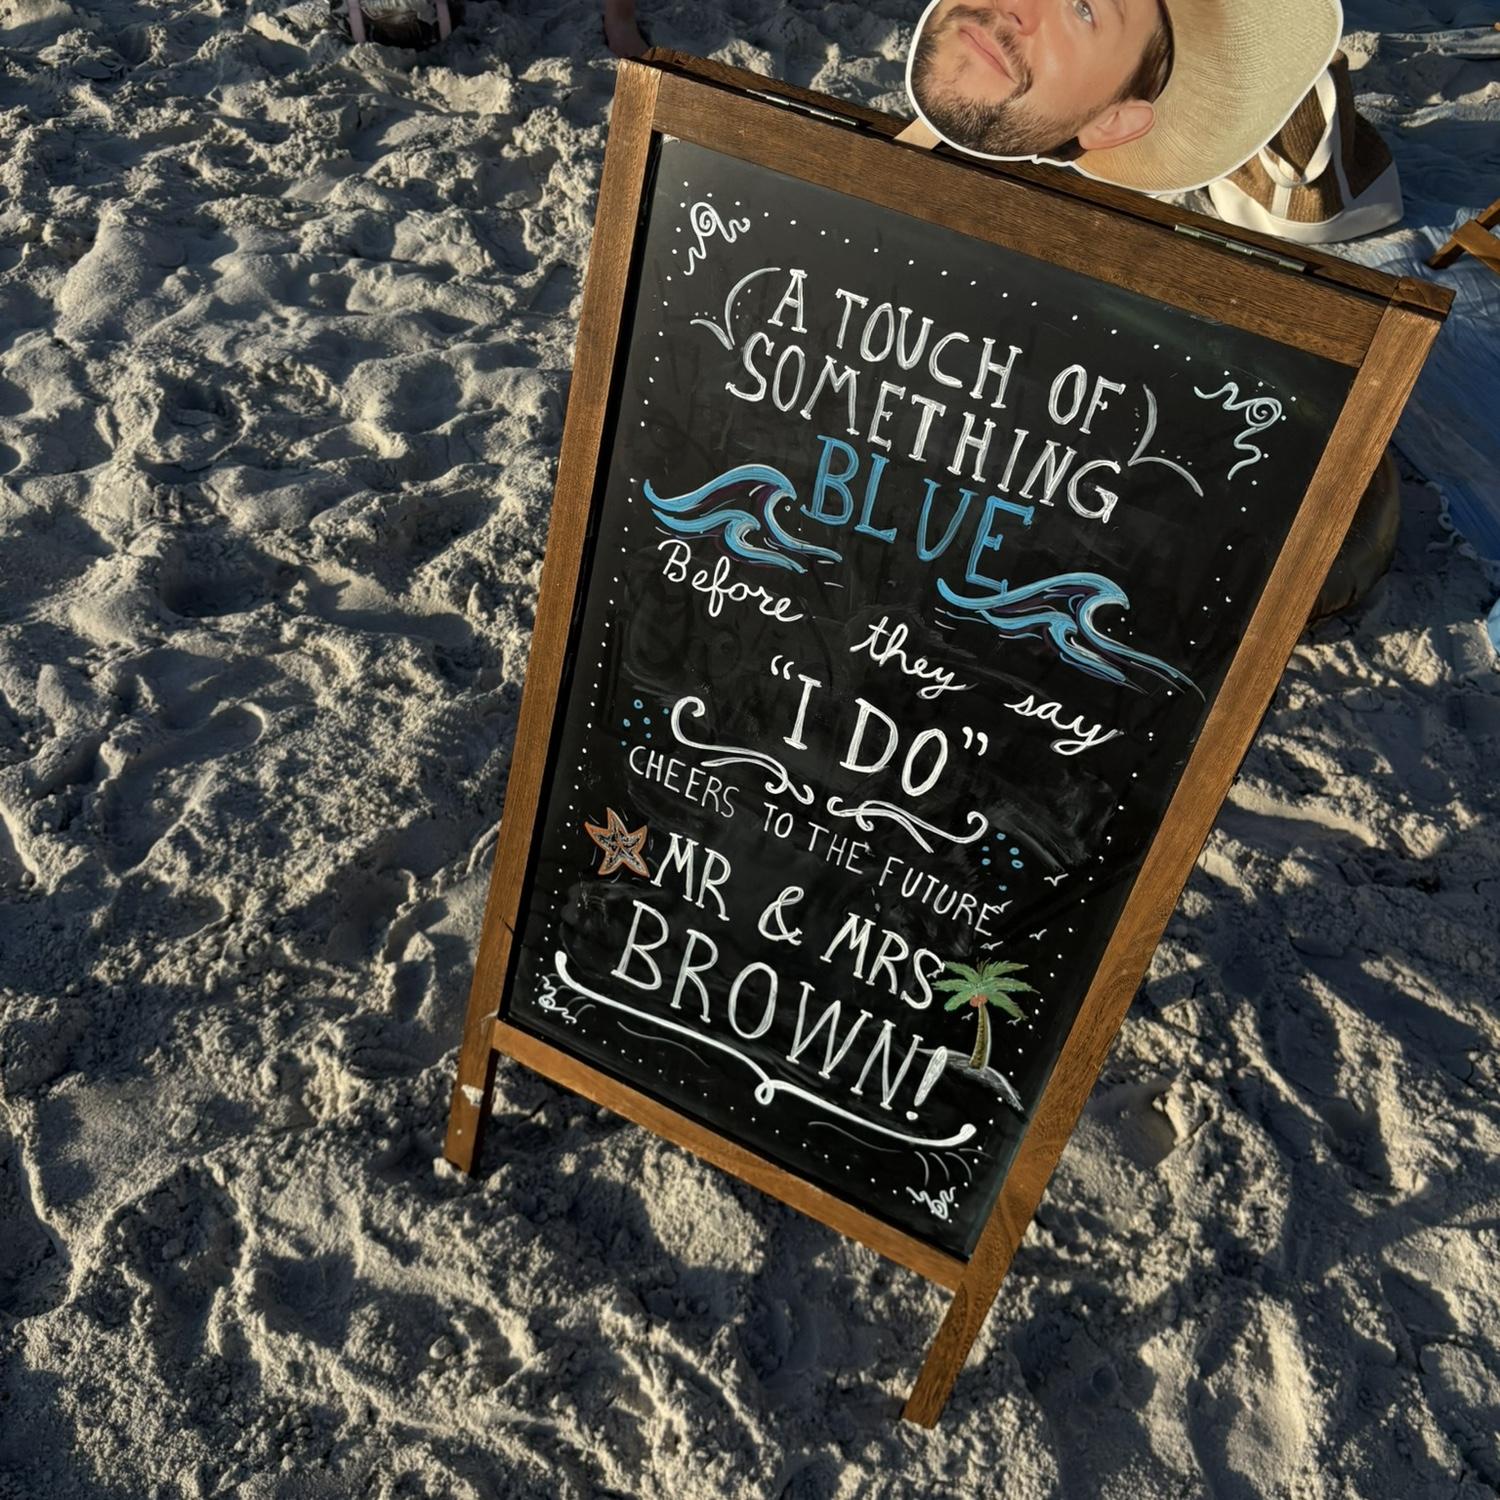 A TOUCH OF
SOMETHING
BLUE
Before they say
“I DO”
CHEERS TO THE FUTURE
MR & MRS
BROWN!